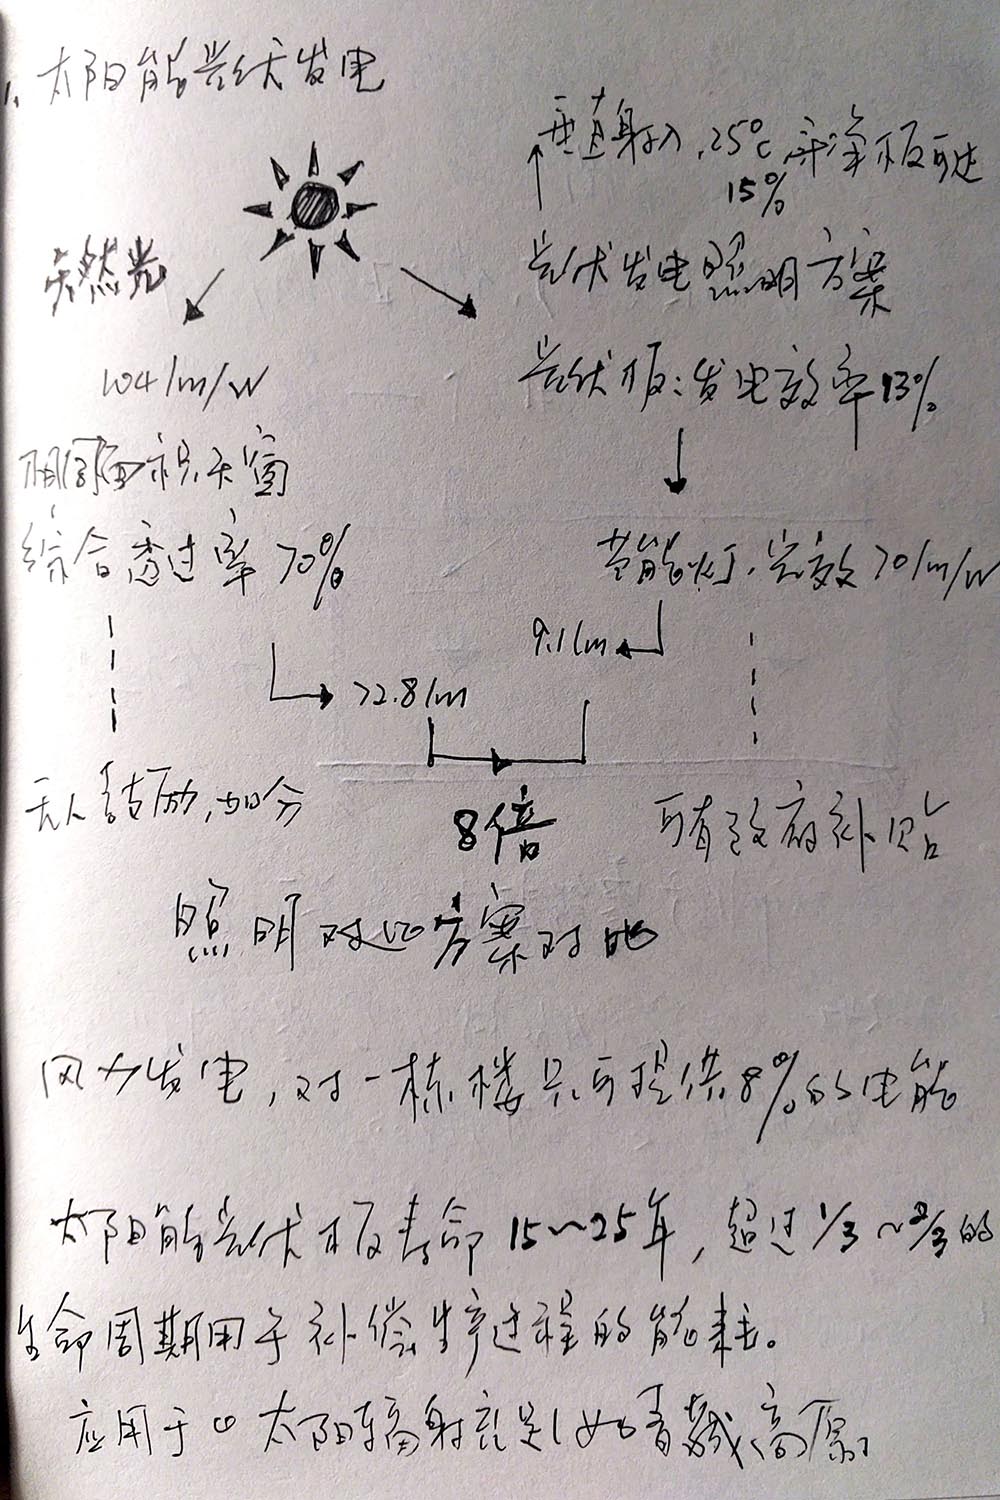 1、太阳能光伏发电
垂直射入,25℃,干净板可达
15%
天然光
光伏发电照明方案
104lm/W
光伏板:发电效率13%
相同面积天窗
综合透过率70%
节能灯,光效70lm/W
9.1lm
72.8lm
8倍
无人鼓励,加分
可有政府补贴
照明对比方案对比
风力发电,对一栋楼只可提供8%的电能
太阳能光伏板寿命15~25年,超过1/3~2/3的
生命周期用于补偿生产过程的能耗。
应用于① 太阳辐射充足(如青藏高原